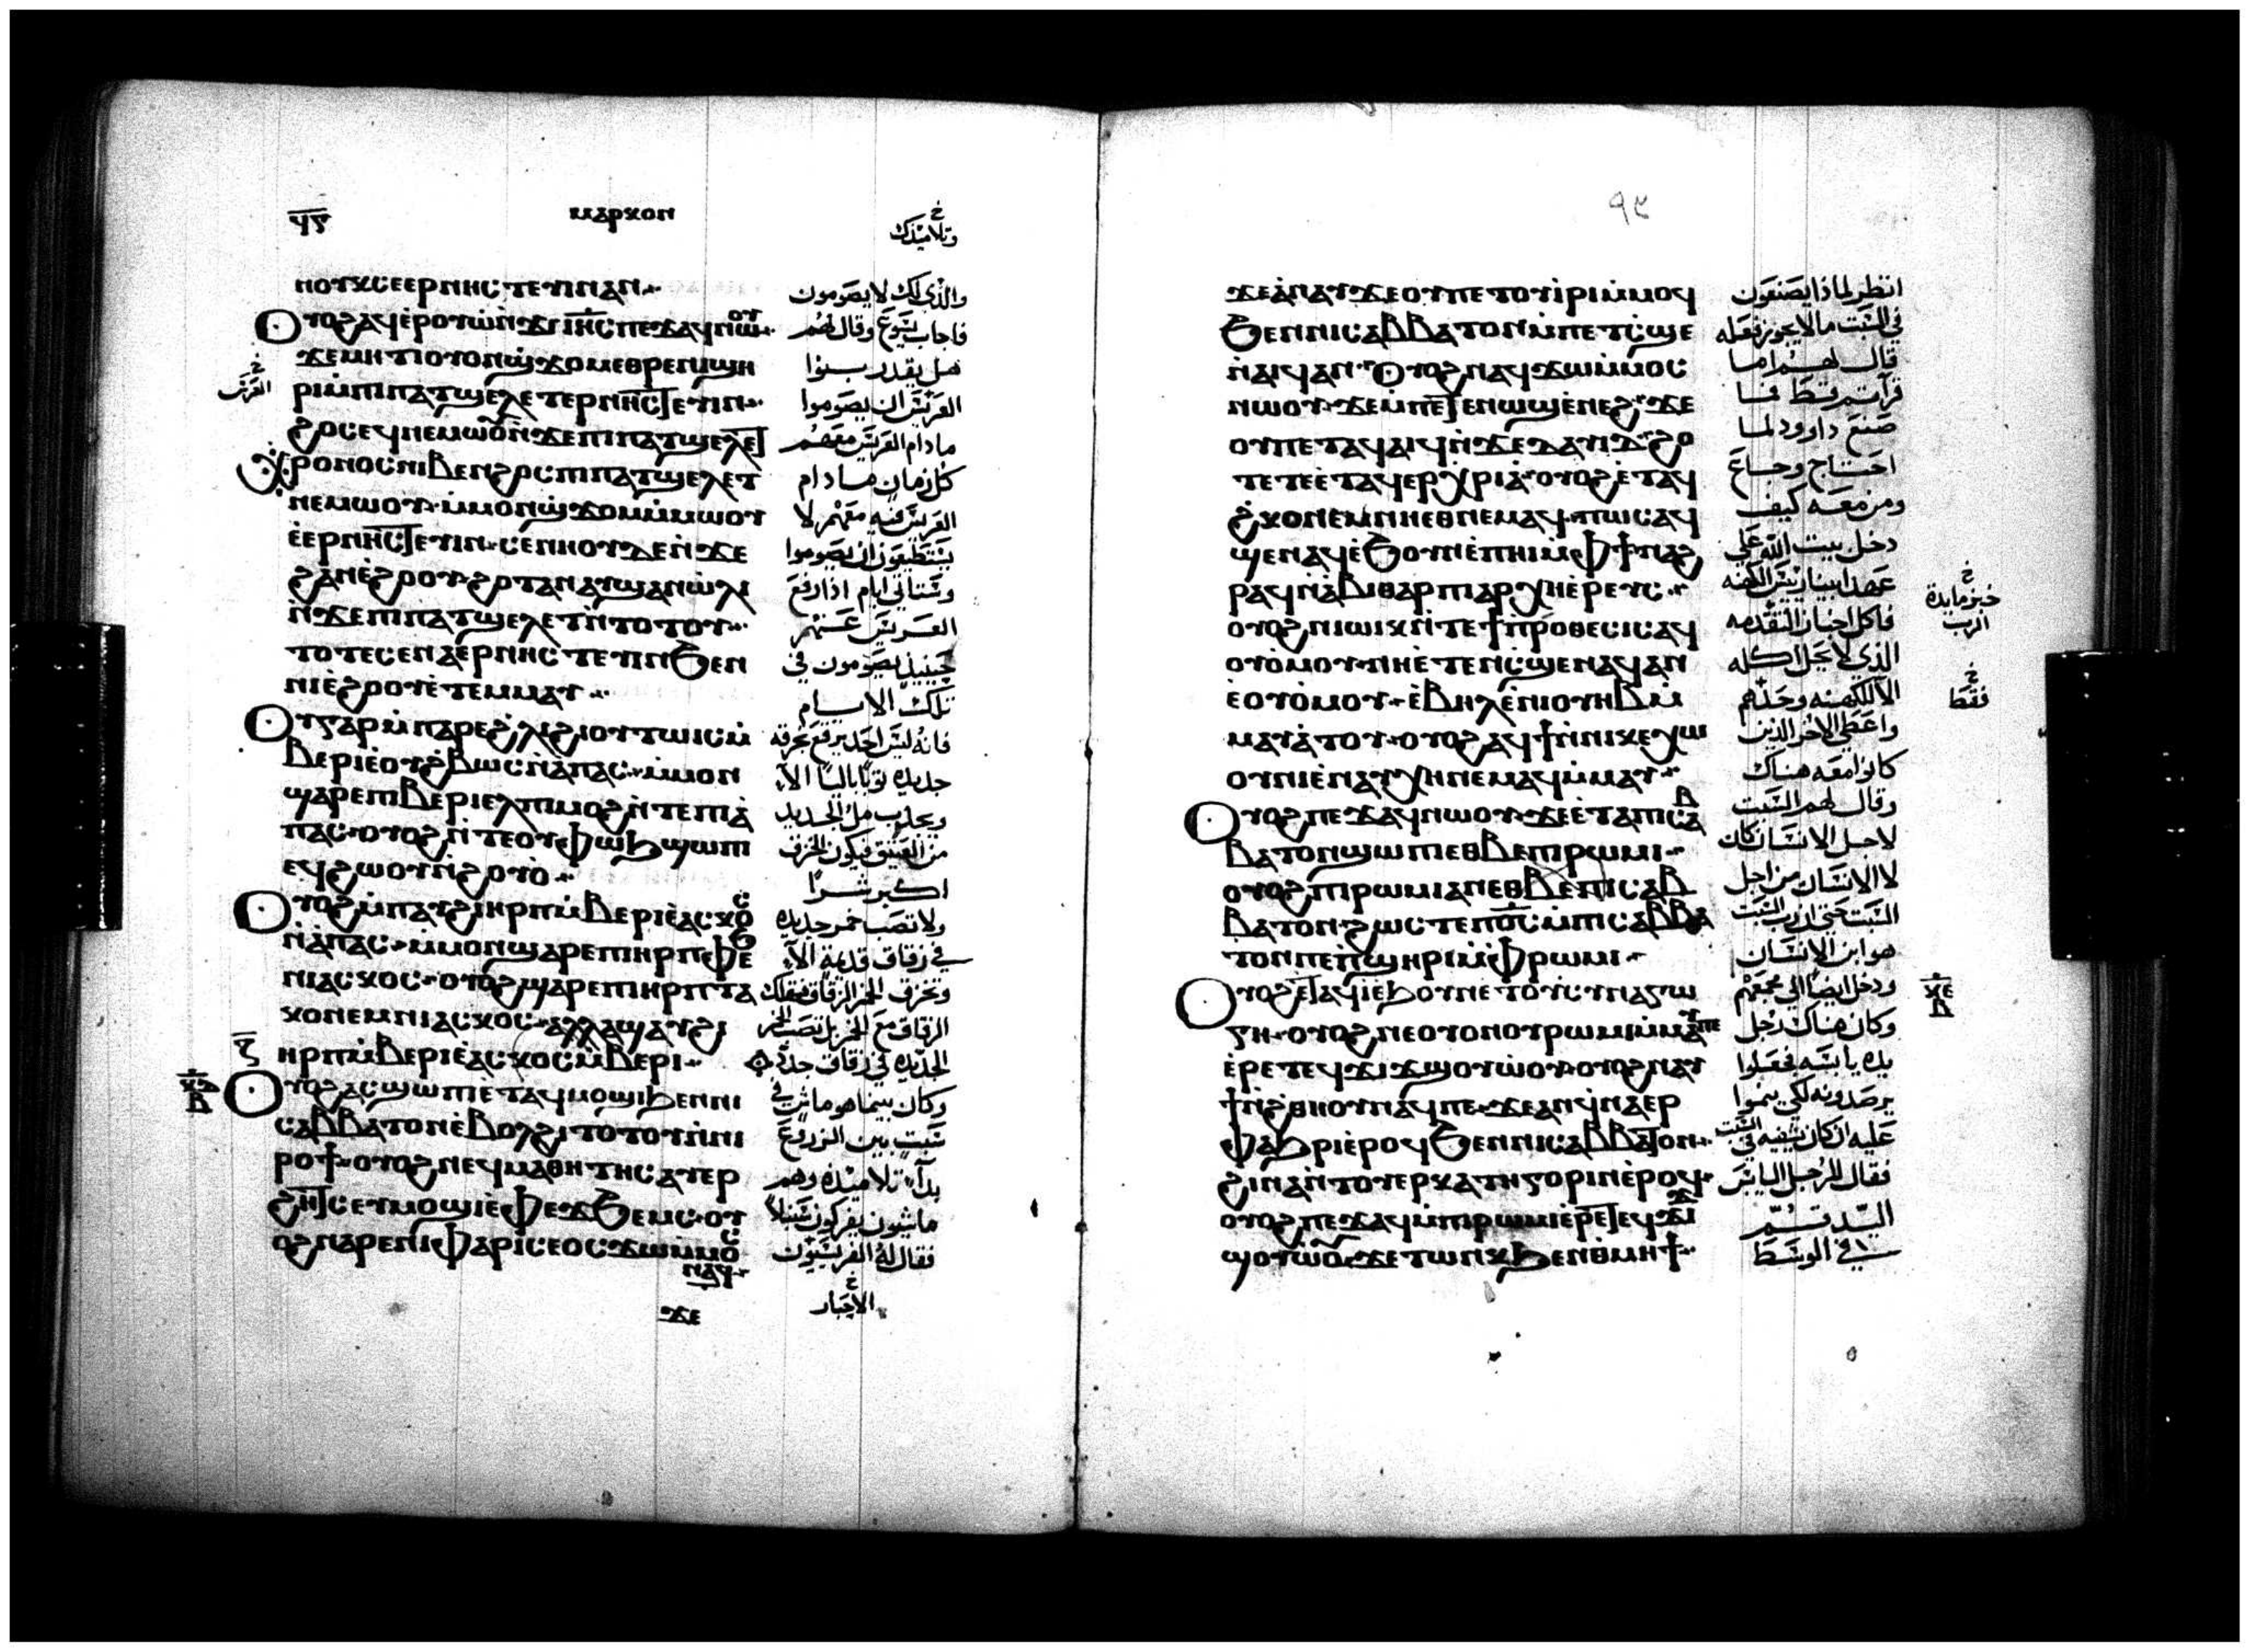 ϥⲋ
ⲙⲁⲣⲕⲟⲛ
وتلاميذك
ⲛⲟⲩⲕ ⲥⲉⲉⲣⲛⲏⲥⲧⲉⲩⲓⲛ ⲁⲛ
ⲟⲩⲟϩ ⲁϥⲉⲣⲟⲩⲱ ⲛϫⲉ ⲓⲏⲥ ⲡⲉϫⲁϥ ⲛⲱⲟⲩ
ϫⲉ ⲙⲏⲧⲓ ⲟⲩⲟⲛ ϣϫⲟⲙ ⲉⲑⲣⲉⲛϣⲏ
ⲣⲓ ⲙⲡⲓⲡⲁⲧϣⲉⲗⲉⲧ ⲉⲣⲛⲏⲥⲧⲉⲩⲓⲛ
ϩⲟⲥ ⲉϥⲛⲉⲙⲱⲟⲩ ⲛϫⲉ ⲡⲓⲡⲁⲧϣⲉⲗⲉⲧ
ⲭⲣⲟⲛⲟⲥ ⲛⲓⲃⲉⲛ ϩⲟⲥ ⲡⲓⲡⲁⲧϣⲉⲗⲉⲧ
ⲛⲉⲙⲱⲟⲩ ⲙⲙⲟⲛ ϣϫⲟⲙ ⲙⲙⲱⲟⲩ
ⲉⲉⲣⲛⲏⲥⲧⲉⲩⲓⲛ ⲥⲉⲛⲏⲟⲩ ⲇⲉ ⲛϫⲉ
ϩⲁⲛⲉϩⲟⲟⲩ ϩⲟⲧⲁⲛ ⲁⲩϣⲁⲛⲱⲗⲓ
ⲛϫⲉ ⲡⲓⲡⲁⲧϣⲉⲗⲉⲧ ⲛⲧⲟⲧⲟⲩ
ⲧⲟⲧⲉ ⲥⲉⲛⲁⲉⲣⲛⲏⲥⲧⲉⲩⲓⲛ ϧⲉⲛ
ⲛⲓⲉϩⲟⲟⲩ ⲉⲧⲉⲙⲙⲁⲩ
ⲟⲩ ⲅⲁⲣ ⲙⲡⲁⲣⲉ ϩⲗⲓ ϩⲓⲟⲩⲧⲱⲓⲥ ⲙ
ⲃⲉⲣⲓ ⲉⲟⲩϩⲃⲱⲥ ⲛⲁⲡⲁⲥ ⲙⲙⲟⲛ
ϣⲁⲣⲉ ⲡⲓⲃⲉⲣⲓ ⲉⲗ ⲡⲙⲟϩ ⲛⲧⲉ ⲡⲓⲁ
ⲡⲁⲥ ⲟⲩⲟϩ ⲛⲧⲉ ⲟⲩⲫⲱϧ ϣⲱⲡⲓ
ⲉϥϩⲱⲟⲩ ⲛϩⲟⲩⲟ
ⲟⲩⲟϩ ⲙⲡⲁⲩϩⲓ ⲏⲣⲡ ⲙⲃⲉⲣⲓ ⲉⲁⲥⲕⲟⲥ
ⲛⲁⲡⲁⲥ ⲙⲙⲟⲛ ϣⲁⲣⲉ ⲡⲓⲏⲣⲡ ⲫⲉϧ
ⲛⲓⲁⲥⲕⲟⲥ ⲟⲩⲟϩ ϣⲁⲣⲉ ⲡⲓⲏⲣⲡ ⲧⲁ
ⲕⲟ ⲛⲉⲙ ⲛⲓⲁⲥⲕⲟⲥ ⲁⲗⲗⲁ ϣⲁⲩϩⲓ
ⲏⲣⲡ ⲙⲃⲉⲣⲓ ⲉⲁⲥⲕⲟⲥ ⲙⲃⲉⲣⲓ
ⲟⲩⲟϩ ⲁⲥϣⲱⲡⲓ ⲉⲧⲁϥⲙⲟϣⲓ ϧⲉⲛ ⲛⲓ
ⲥⲁⲃⲃⲁⲧⲟⲛ ⲉⲃⲟⲗ ϩⲓⲧⲟⲧⲟⲩ ⲛⲛⲓ
ⲣⲟϯ ⲟⲩⲟϩ ⲛⲉϥⲙⲁⲑⲏⲧⲏⲥ ⲁⲩⲉⲣ
ϩⲏⲧⲥ ⲉⲩⲙⲟϣⲓ ⲉⲫⲉϫ ϧⲉⲙⲥ ⲟⲩ
ⲟϩ ⲛⲁⲣⲉ ⲛⲓⲫⲁⲣⲓⲥⲉⲟⲥ ϫⲱ ⲙⲙⲟⲥ
ⲛⲁϥ
ϫⲉ
والذي لك لا يصومون
فاجاب يسوع وقال لهم
هل يقدر بنوا
العريس ان يصوموا
ما دام العريس معهم
كل زمان ما دام
العريس فيه معهم لا
يستطيعون ان يصوموا
وستاتي ايام اذا رفع
العريس عنهم
حينيذ يصومون في
تلك الايام
فانه ليس احد يرقع بخرقه
جديده ثوبا باليا الا
ويجذب مل الجديد
من العتيق فيكون الخرق
اكبر شرا
ولا تصب خمر جديده
في زقاق قديمة الا
وتخرق الخمر الزقاق فتهلك
الزقاق مع الخمر بل تصب الخمر
الجديده في زقاق جدد
وكان بينما هو ماش في
سبت بين الزروع
بدأ تلاميذه وهم
ماشون يفركون سنبلا
فقال له الفريسيون
الاحبار
٩٥
ϫⲉ ⲁⲛⲁⲩ ϫⲉ ⲟⲩ ⲡⲉⲧⲟⲩⲓⲣⲓ ⲙⲙⲟϥ
ϧⲉⲛ ⲛⲓⲥⲁⲃⲃⲁⲧⲟⲛ ⲙⲡⲉⲧⲥϣⲉ
ⲛⲁⲓϥ ⲁⲛ ⲟⲩⲟϩ ⲛⲁϥϫⲱ ⲙⲙⲟⲥ
ⲛⲱⲟⲩ ϫⲉ ⲙⲡⲉⲧⲉⲛⲱϣ ⲉⲛⲉϩ ϫⲉ
ⲟⲩ ⲡⲉⲧⲁϥⲁⲓϥ ⲛϫⲉ ⲇⲁⲩⲓⲇ ϩⲟ
ⲧⲉ ⲧⲉ ⲉⲧⲁϥⲉⲣⲭⲣⲓⲁ ⲟⲩⲟϩ ⲉⲧⲁϥ
ϩⲕⲟ ⲛⲉⲙ ⲛⲏⲉⲑⲛⲉⲙⲁϥ ⲡⲱⲥ ⲁϥ
ϣⲉⲛⲁϥ ⲉϧⲟⲩⲛ ⲉⲡⲏⲓ ⲙⲫϯ ⲛⲁϩ
ⲣⲁϥ ⲛⲁⲃⲓⲑⲁⲣ ⲡⲓⲁⲣⲭⲏⲉⲣⲉⲩⲥ
ⲟⲩⲟϩ ⲛⲓⲱⲓⲕ ⲛⲧⲉ ϯⲡⲣⲟⲑⲉⲥⲓⲥ ⲁϥ
ⲟⲩⲟⲙⲟⲩ ⲛⲏⲉⲧⲉ ⲛⲥϣⲉ ⲛⲁϥ ⲁⲛ
ⲉⲟⲩⲟⲙⲟⲩ ⲉⲃⲏⲗ ⲉⲛⲓⲟⲩⲏⲃ ⲙ
ⲙⲁⲩⲁⲧⲟⲩ ⲟⲩⲟϩ ⲁϥϯ ⲛⲛⲓⲕⲉⲭⲱ
ⲟⲩⲛⲓ ⲉⲛⲁⲩⲭⲏ ⲛⲉⲙⲁϥ ⲙⲙⲁⲩ
ⲟⲩⲟϩ ⲡⲉϫⲁϥ ⲛⲱⲟⲩ ϫⲉ ⲉⲧⲁ ⲡⲓⲥⲁⲃ
ⲃⲁⲧⲟⲛ ϣⲱⲡⲓ ⲉⲑⲃⲉ ⲡⲓⲣⲱⲙⲓ
ⲟⲩⲟϩ ⲡⲓⲣⲱⲙⲓ ⲁⲛ ⲉⲑⲃⲉ ⲡⲓⲥⲁⲃ
ⲃⲁⲧⲟⲛ ϩⲱⲥⲧⲉ ⲡⲟⲥ ⲙⲡⲓⲥⲁⲃⲃⲁ
ⲧⲟⲛ ⲡⲉ ⲡϣⲏⲣⲓ ⲙⲫⲣⲱⲙⲓ
ⲟⲩⲟϩ ⲉⲧⲁϥⲓ ⲉϧⲟⲩⲛ ⲉⲧⲟⲩⲥⲩⲛⲁⲅⲱ
ⲅⲏ ⲟⲩⲟϩ ⲛⲉ ⲟⲩⲟⲛ ⲟⲩⲣⲱⲙⲓ ⲙⲙⲁⲩ ⲡⲉ
ⲉⲣⲉ ⲧⲉϥϫⲓϫ ϣⲟⲩⲱⲟⲩ ⲟⲩⲟϩ ⲛⲁⲩ
ϯⲛϩⲑⲏⲟⲩ ⲛⲁϥ ⲡⲉ ϫⲉ ⲁⲛ ϥⲛⲁⲉⲣ
ⲫⲁϧⲣⲓ ⲉⲣⲟϥ ϧⲉⲛ ⲛⲓⲥⲁⲃⲃⲁⲧⲟⲛ
ϩⲓⲛⲁ ⲛⲧⲟⲩⲉⲣⲕⲁⲧⲏⲅⲟⲣⲓⲛ ⲉⲣⲟϥ
ⲟⲩⲟϩ ⲡⲉϫⲁϥ ⲙⲡⲓⲣⲱⲙⲓ ⲉⲣⲉ ⲧⲉϥϫⲓϫ
ϣⲟⲩⲱⲟⲩ ϫⲉ ⲧⲱⲛⲕ ϧⲉⲛ ⲑⲙⲏϯ
انظر لماذا يصنعون
في السبت ما لا يجوز فعله
قال لهم اما
قرأتم قط ما
صنع داوود لما
احتاج وجاع
ومن معه كيف
دخل بيت الله على
عهد ابيثار رييس الكهنه
فاكل اخباز التقدمه
الذي لا يحل اكله
الا للكهنه وحدهم
واعطى الاخر الذين
كانوا معه هناك
وقال لهم السبت
لاجل الانسان كان
لا الانسان من اجل
السبت حتى ان رب السبت
هو ابن الانسان
ودخل ايضا الي مجمعهم
وكان هناك رجل
يده يابسه فجعلوا
يرصدونه لكي ينموا
عليه ان كان يشفيه في السبت
فقال للرجل اليابس
اليد قم
في الوسط
خبز مايدة
الرب
فقط